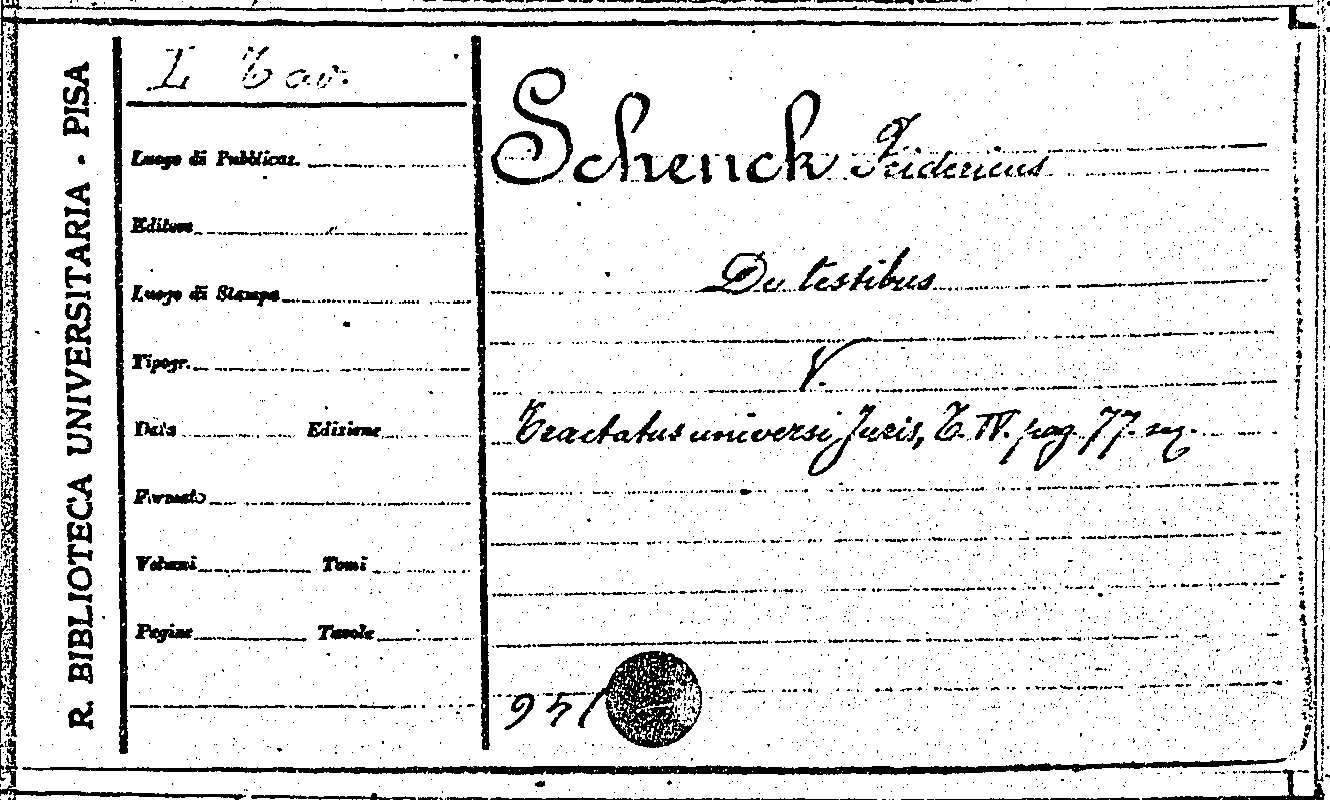 R. BIBLIOTECA UNIVERSITARIA - PISA
L Tav.
Luogo di Pubblicaz.
Editore
Luogo di Stampa
Tipogr.
Data Edizione
Formato
Volumi Tomi
Pagine Tavole
Schenck Fridericus
De testibus
V.
Tractatus universi Juris, T. IV. pag. 77. seg.
951